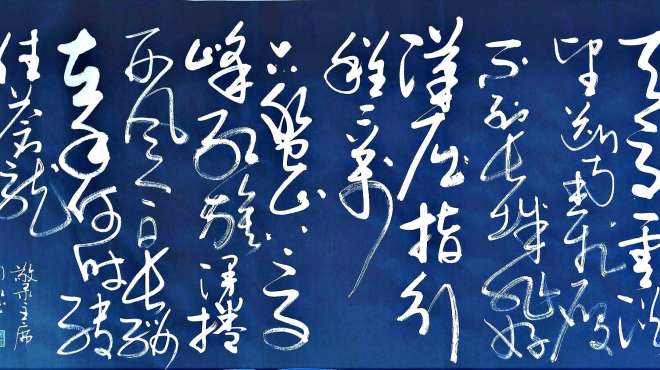 天高雲淡
望断南飛雁
不到长城非好
漢屈指行
程二萬
六盤山上高
峰红旗漫捲
西風今日长缨
在手何时缚
住苍龍
敬录主席